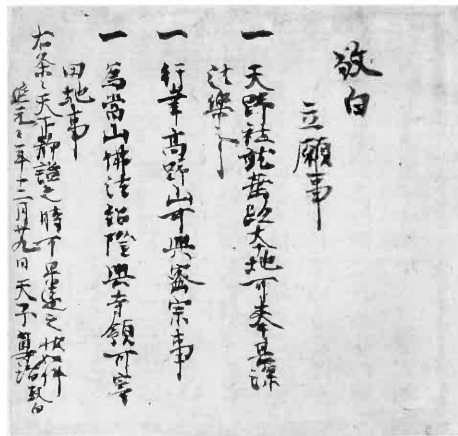 敬白
立願事
一 天野社大地可奉甚深
法樂事
一 行幸高野山可興密宗事
一 為當山佛法紹隆興寺領可寄
田地事
右条々天下静謐之時可早遂之状如件
延元々年十二月廿九日天子尊治敬白